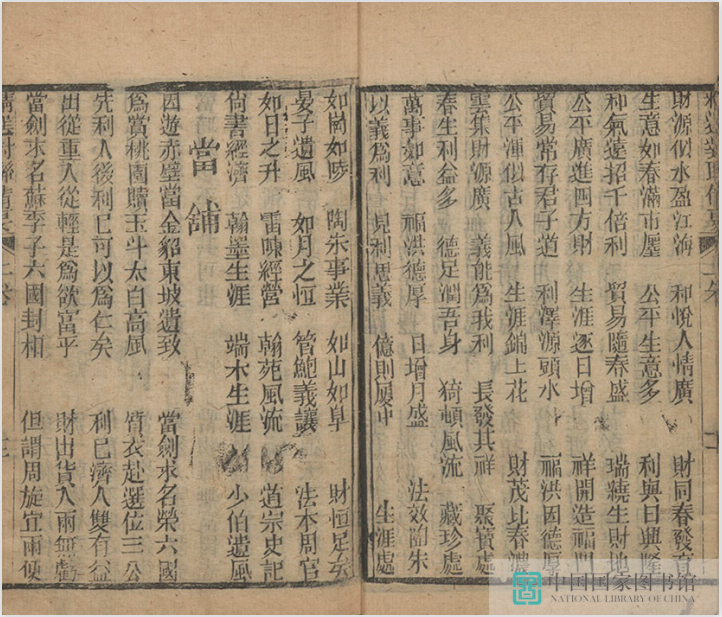 財源似水盈江海 和悅人情廣 財同春發育
生意如春滿市廛 公平生意多 利與日興隆
和氣遠招千倍利 貿易隨春盛 瑞繞生財地
公平廣進四方財 生涯逐日增 祥開造福門
貿易常存君子道 利澤源頭水 福洪因德厚
公平渾似古人風 生涯錦上花 財茂比春濃
雲集財源廣 義能爲我利 長發其祥 聚寶處
春生利益多 德足潤吾身 猗頓風流 藏珍處
萬事如意 福洪德厚 日增月盛 法效陶朱
以義爲利 見利思義 億則屢中 生涯處
如崗如陵 陶朱事業 如山如阜 財恒足矣
晏子遺風 如月之恒 管鮑義讓 法本周官
如日之升 雷陳經營 翰苑風流 道宗史記
尚書經濟 翰墨生涯 端木生涯 少伯遺風
當舖
因遊赤壁當金貂東坡遺致 當劍求名榮六國
爲當桃園贖玉斗太白高風 質衣赴選位三公
先利人後利己可以爲仁矣 利己濟人雙有益
出從重入從輕是爲欲富乎 財出貨入兩無虧
當劍求名蘇季子六國封相 但謂周旋宜兩便
中国国家图书馆
NATIONAL LIBRARY OF CHINA